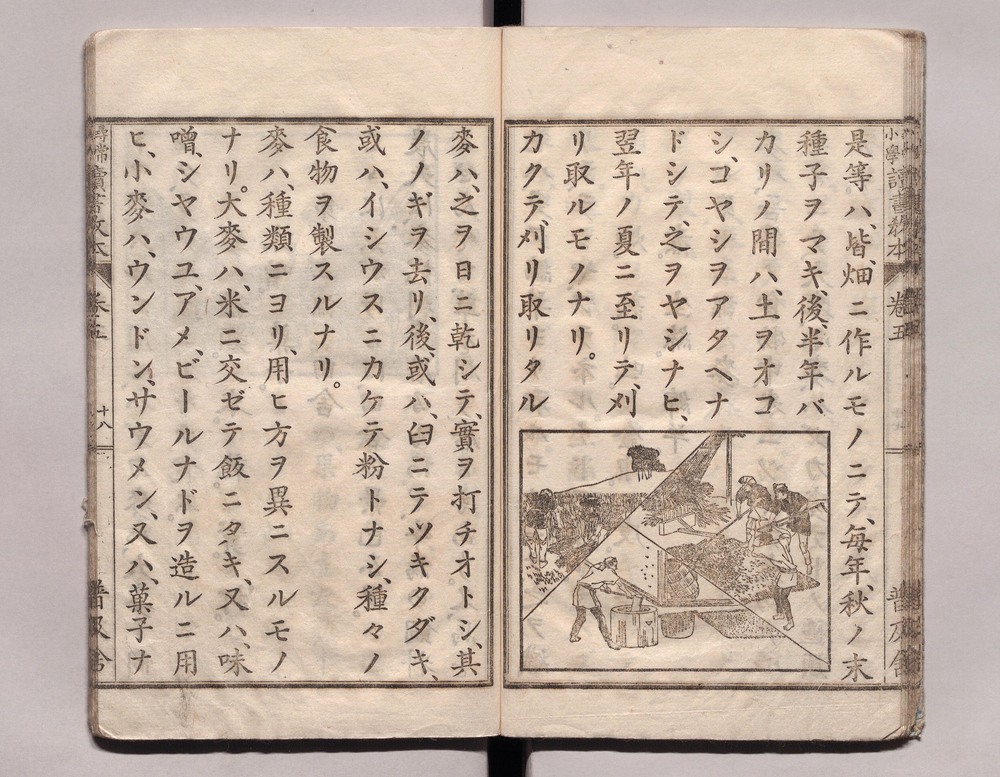 小學讀書教本
卷五
普及舍
是等ハ、皆、畑ニ作ルモノニテ、毎年、秋ノ末
種子ヲマキ、後、半年バ
カリノ間ハ、土ヲオコ
シ、コヤシヲアタヘナ
ドシテ、之ヲヤシナヒ、
翌年ノ夏ニ至リテ、刈
リ取ルモノナリ。
カクテ、刈リ取リタル
麥ハ、之ヲ日ニ乾シテ、實ヲ打チオトシ、其
ノノギヲ去リ、後、或ハ、臼ニテツキクダキ、
或ハ、イシウスニカケテ粉トナシ、種々ノ
食物ヲ製スルナリ。
麥ハ、種類ニヨリ、用ヒ方ヲ異ニスルモノ
ナリ。大麥ハ、米ニ交ゼテ飯ニタキ、又ハ、味
噌、シヤウユ、アメ、ビールナドヲ造ルニ用
ヒ、小麥ハ、ウンドン、サウメン、又ハ、菓子ナ
尋常
讀書教本
卷五
十八
普及舍